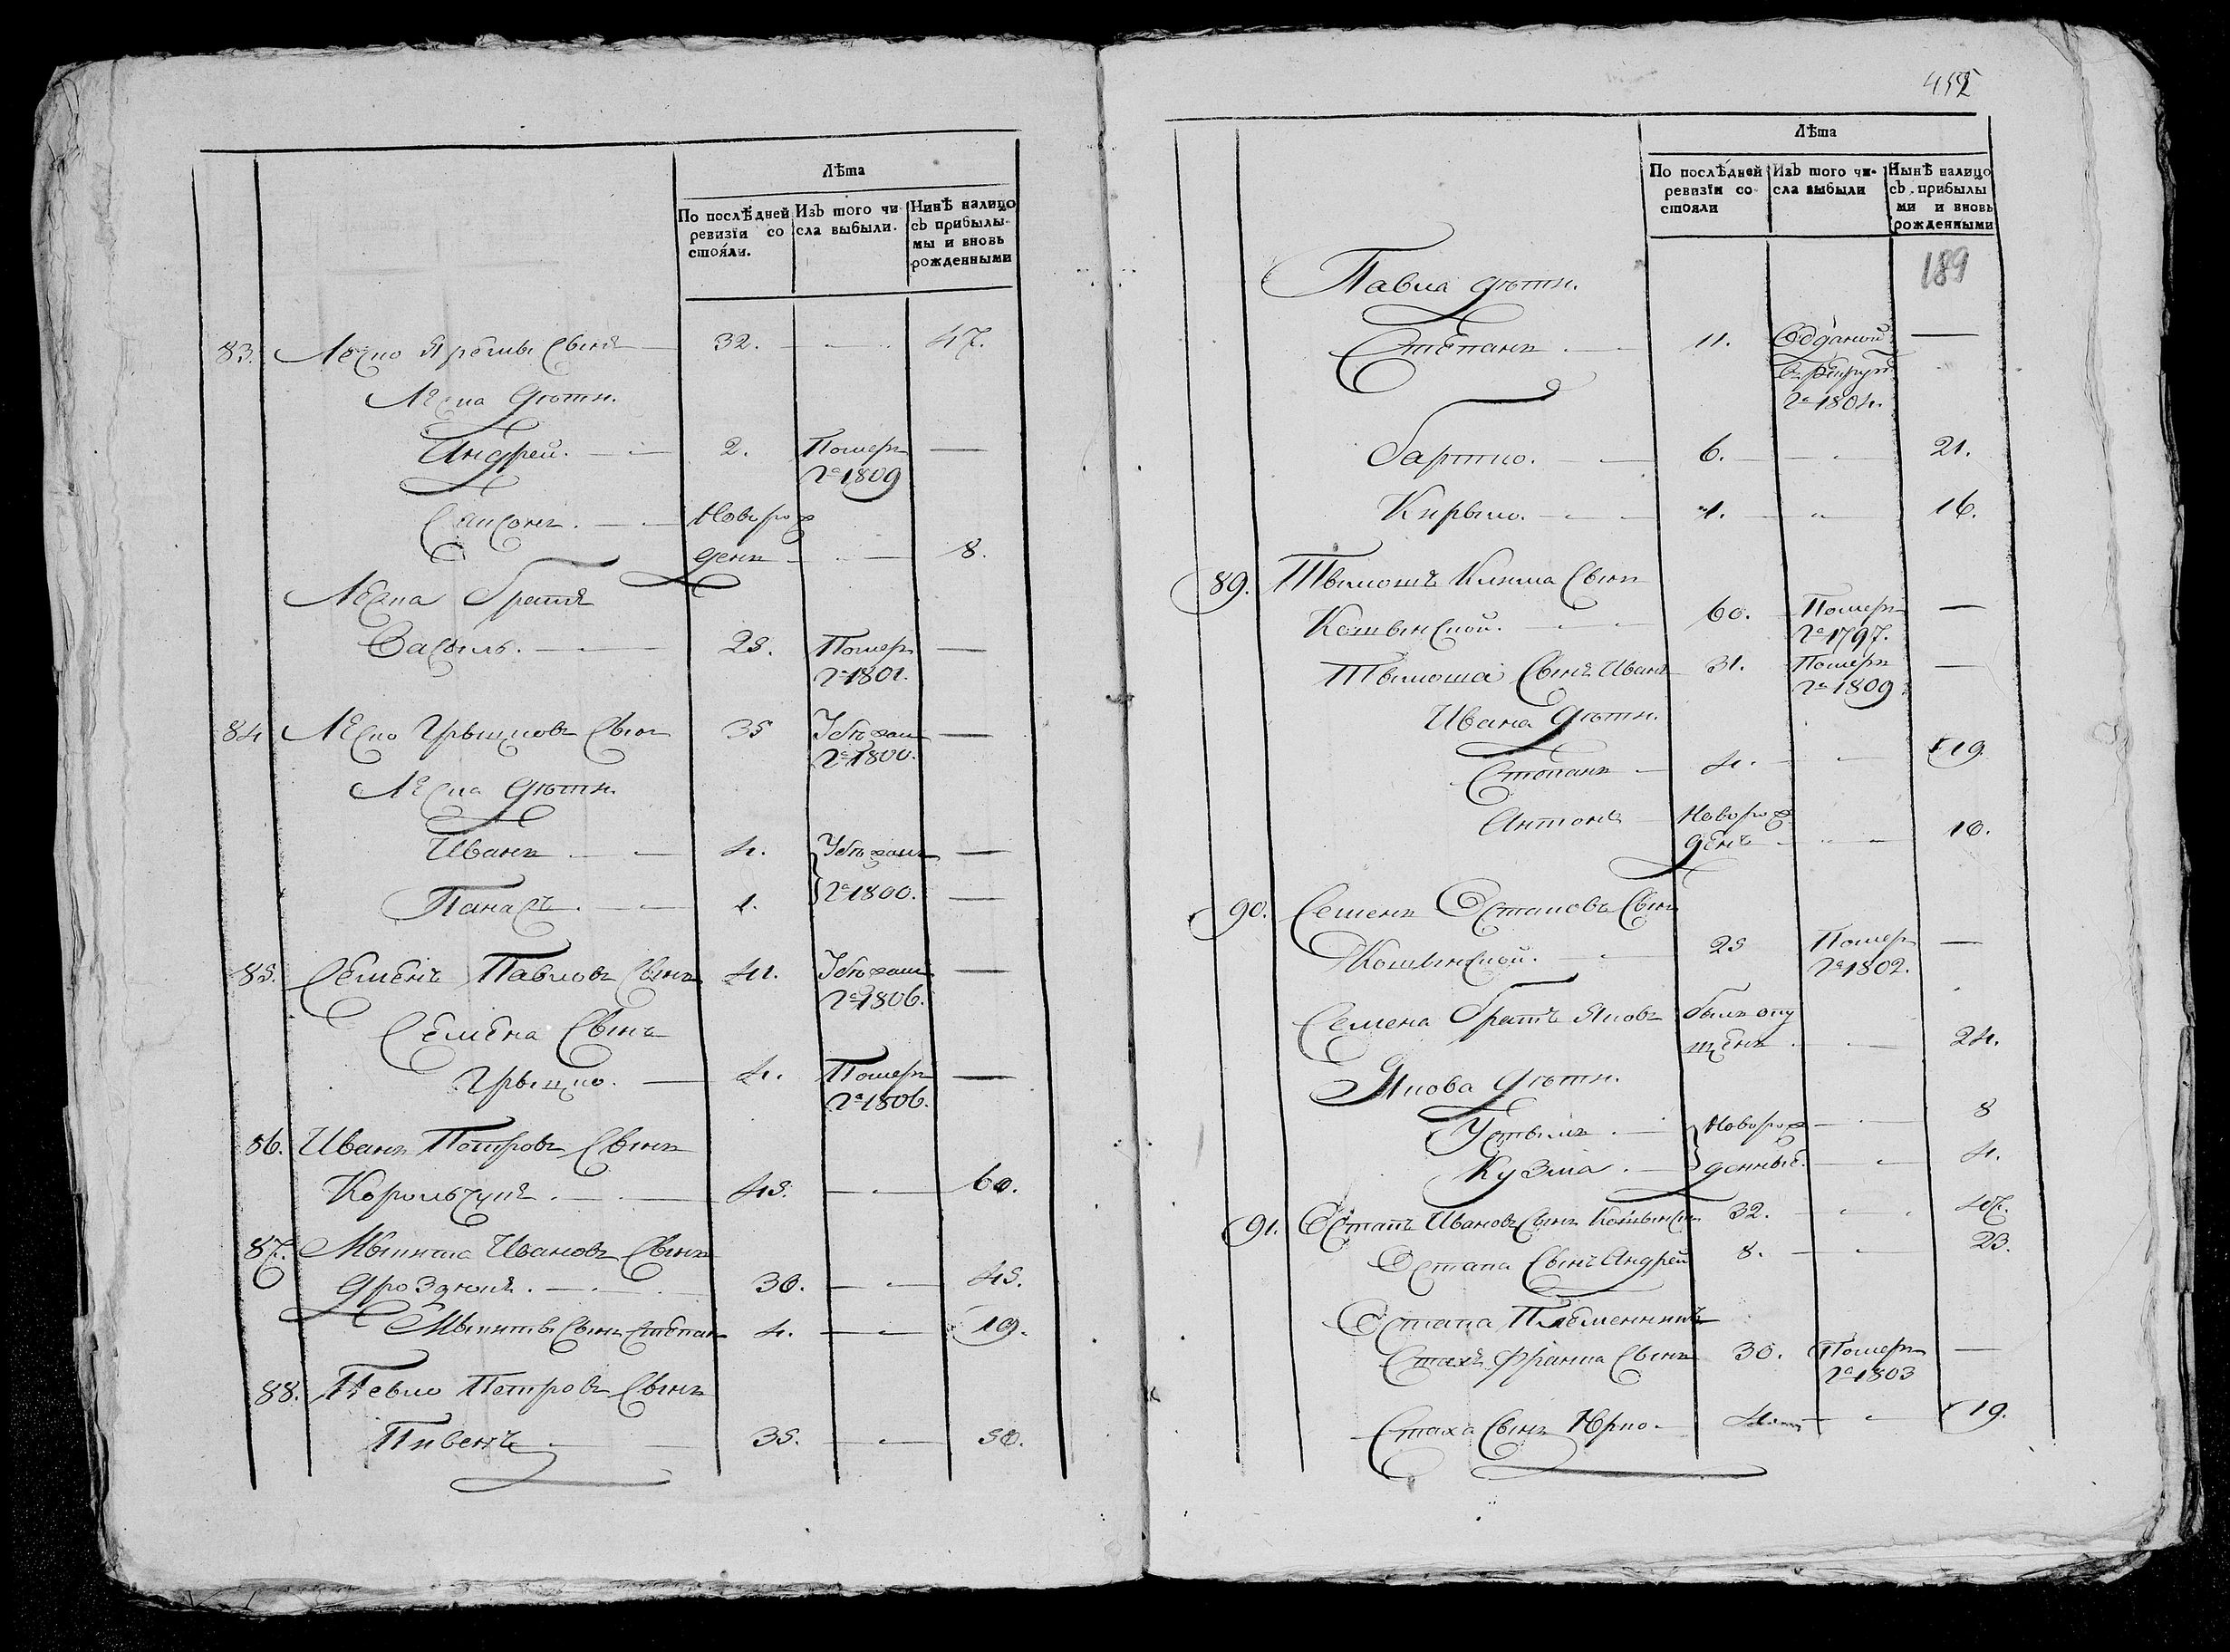 Лѣта
По послѣдней ревизіи состояли.
Изъ того числа выбыли.
Нинѣ налицо съ прибылымы и вновь рожденными
83. Леско Яремы Сынъ 32. — 47.
Леска дѣти.
Андрей. — 2. Померъ —
2ª 1809
Самсонъ. — Новорож
денъ — 8.
Леска братъ
Василь. — 25. Померъ —
2ª 1801.
84 Леско Грыцковъ Сынъ 35 Убѣжалъ —
2ª 1800.
Леска дѣти.
Иванъ — 4. Убѣжалъ —
Панасъ. — 1. 2ª 1800. —
85. Семенъ Павловъ Сынъ 41. Убѣжалъ —
2ª 1806.
Семена Сынъ
Грыцко. — 4. Померъ —
2ª 1806.
86. Иванъ Петровъ Сынъ
Корольчукъ. — 45. — 60.
87. Мыкита Ивановъ Сынъ
Дроздюкъ. — 30. — 45.
Мыкиты Сынъ Степанъ 4. — 19.
88. Павло Петровъ Сынъ
Пивень. 35. — 50.
452
Лѣта
По послѣдней ревизіи состояли
Изъ того числа выбыли
Нынѣ налицо съ прибылыми и вновь рожденными
189
Павла дѣти.
Степанъ. — 11. Отданой —
въ рекруты
2ª 1804.
Бартко. — 6. — 21.
Кирыло. — 1. — 16.
89. Тымошъ Клима Сынъ
Кошынской. 60. Померъ —
2ª 1797.
Тымоша Сынъ Иванъ 31. Померъ —
2ª 1809
Ивана дѣти.
Степанъ — 4. — 19
Антонъ — Новорож
денъ — 10.
90. Семенъ Остаповъ Сынъ
Кошынской. 25 Померъ —
2ª 1802.
Семена братъ Яковъ былъ опу
щенъ — 24.
Якова дѣти.
Устымъ. — Новорож — 8
Кузма. — денные. — 4.
91. Остапъ Ивановъ Сынъ Кошынски 32. — 47.
Остапа Сынъ Андрей 8. — 23.
Остапа Племенникъ
Стахъ Франка Сынъ 30. Померъ —
2ª 1803
Стаха Сынъ Юрко — 4. — 19.